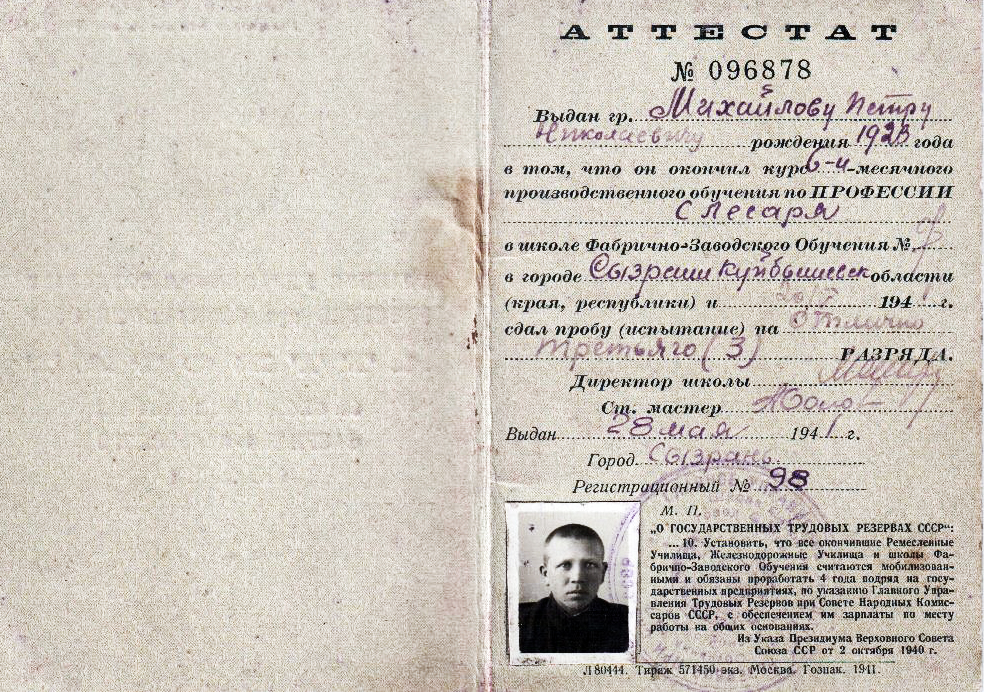 АТТЕСТАТ
№ 096878
Выдан гр. Михайлову Петру
Николаевичу рождения 1923 года
в том, что он окончил курс 6-и -месячного
производственного обучения по ПРОФЕССИИ
слесаря
в школе Фабрично-Заводского Обучения №
в городе Сызрани Куйбышевск области
(края, республики) и 194 г.
сдал пробу (испытание) на Отлично
третьяго (3) РАЗРЯДА.
Директор школы
Ст. мастер
Выдан 28 мая 1941 г.
Город Сызрань
Регистрационный № 98
М. П.
„О ГОСУДАРСТВЕННЫХ ТРУДОВЫХ РЕЗЕРВАХ СССР":
...10. Установить, что все окончившие Ремесленные
Училища, Железнодорожные Училища и школы Фа-
брично-Заводского Обучения считаются мобилизован-
ными и обязаны проработать 4 года подряд на госу-
дарственных предприятиях, по указанию Главного Упра-
вления Трудовых Резервов при Совете Народных Комис-
саров СССР, с обеспечением им зарплаты по месту
работы на общих основаниях.
Из Указа Президиума Верховного Совета
Союза ССР от 2 октября 1940 г.
Л80444. Тираж 571450 экз. Москва. Гознак. 1941.